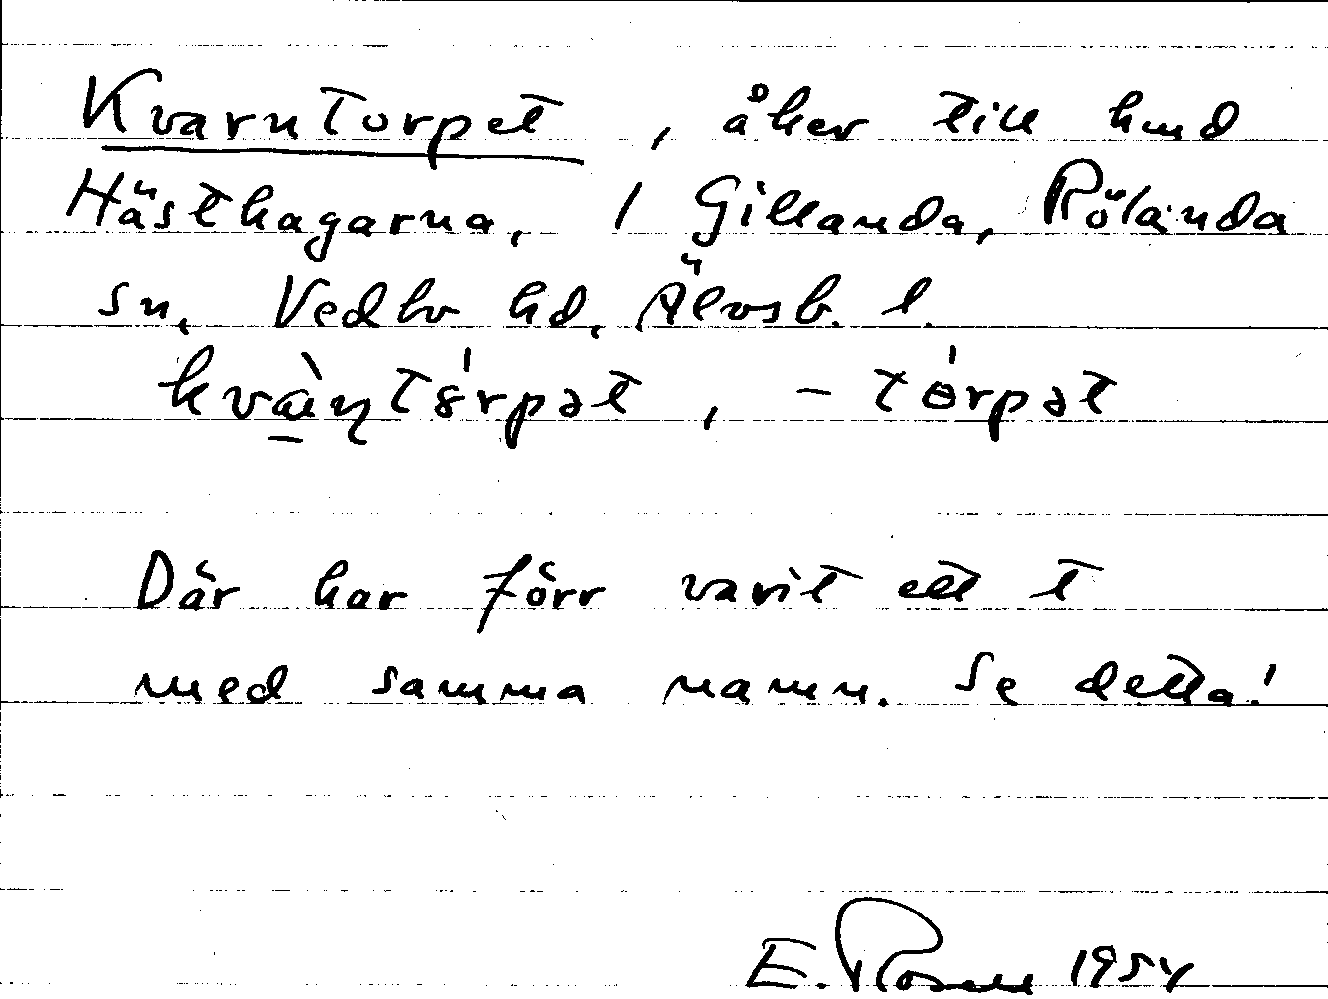 Kvarntorpet, åker till hmd
Hästhagarna, 1 Gillanda, Rölanda
sn. Vedbo hd. Älvsb. l.
kvàṇtórpət, - tórpət
Där har förr varit ett t
med samma namn. Se detta!
E. Rosell 1954